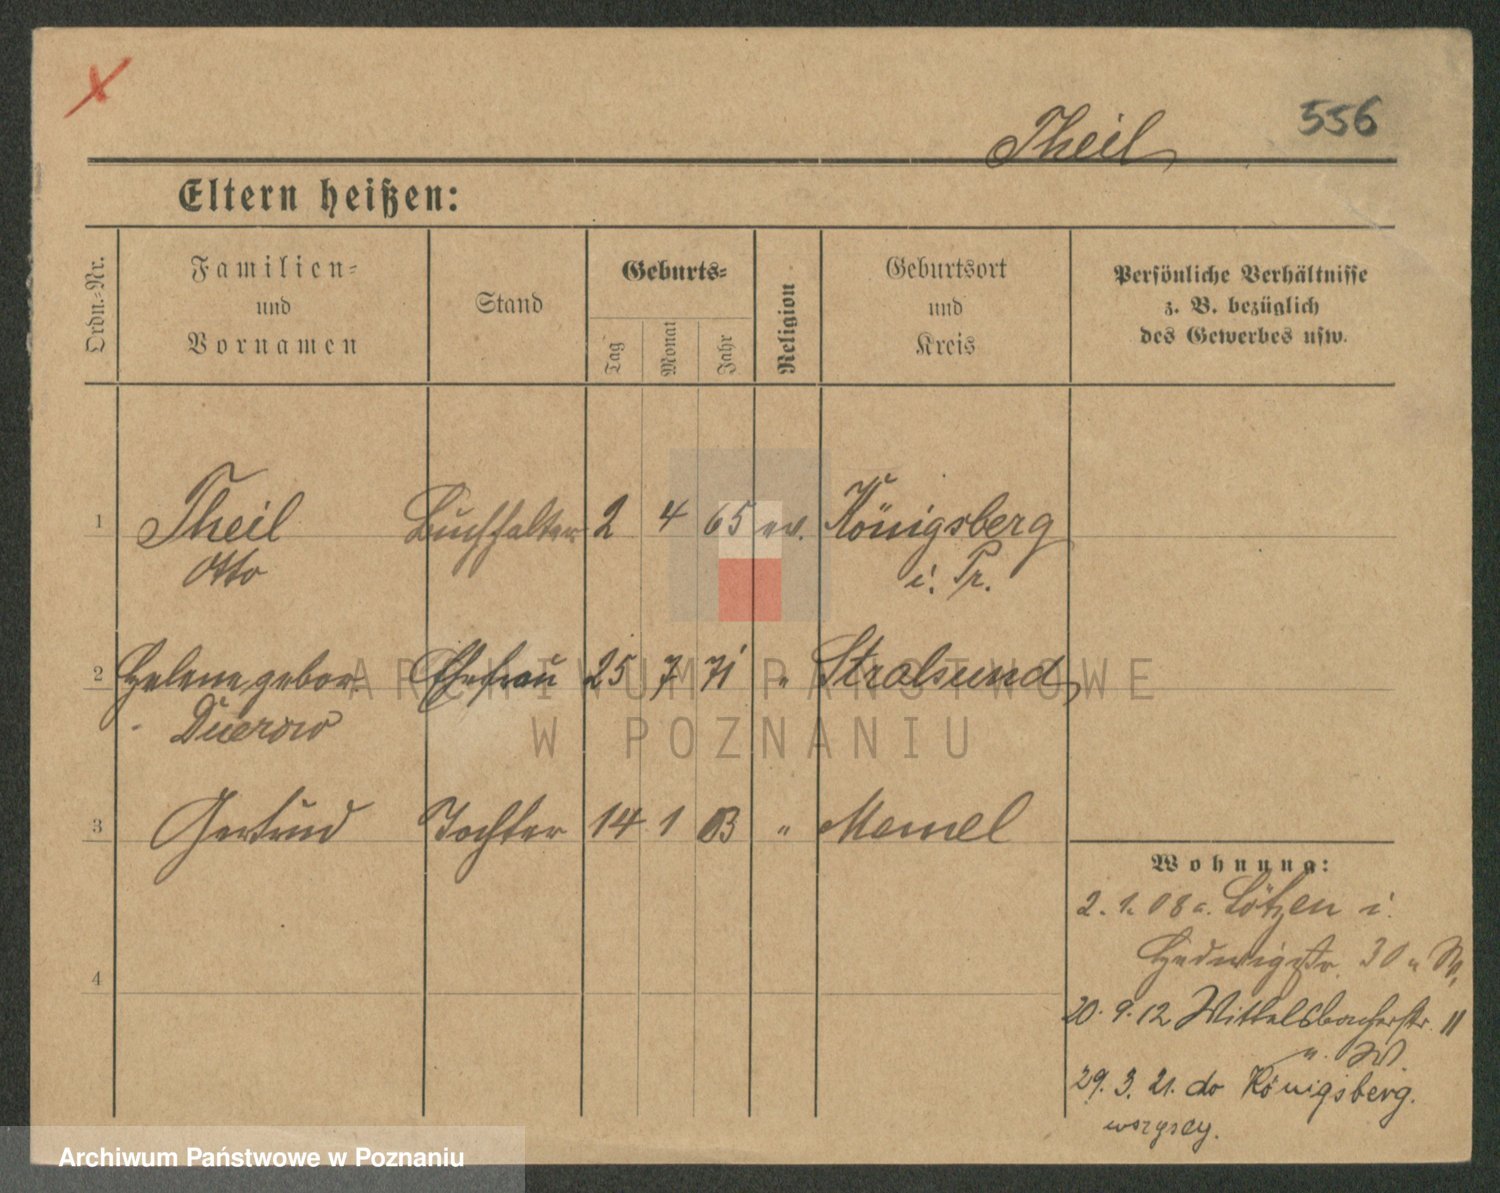 Theil
556
Eltern heißen:
Ordn.-Nr.
Familien-
und
Vornamen
Stand
Geburts-
Tag
Monat
Jahr
Religion
Geburtsort
und
Kreis
Persönliche Verhältnisse
z. B. bezüglich
des Gewerbes usw.
1 Theil Buchhalter 2 4 65 ev. Königsberg
Otto i. Pr.
2 Helene gebor. Ehefrau 25 7 71 " Stralsund
Duerow
3 Gertrud Tochter 14 1 03 " Memel
Wohnung:
2. 1. 08 a. Lötzen i.
Hedwigstr. 30
4
20. 9. 12 Wittelsbacherstr. 11
29. 3. 21. do Königsberg.
wszyscy.
ARCHIWUM PAŃSTWOWE
W POZNANIU
Archiwum Państwowe w Poznaniu